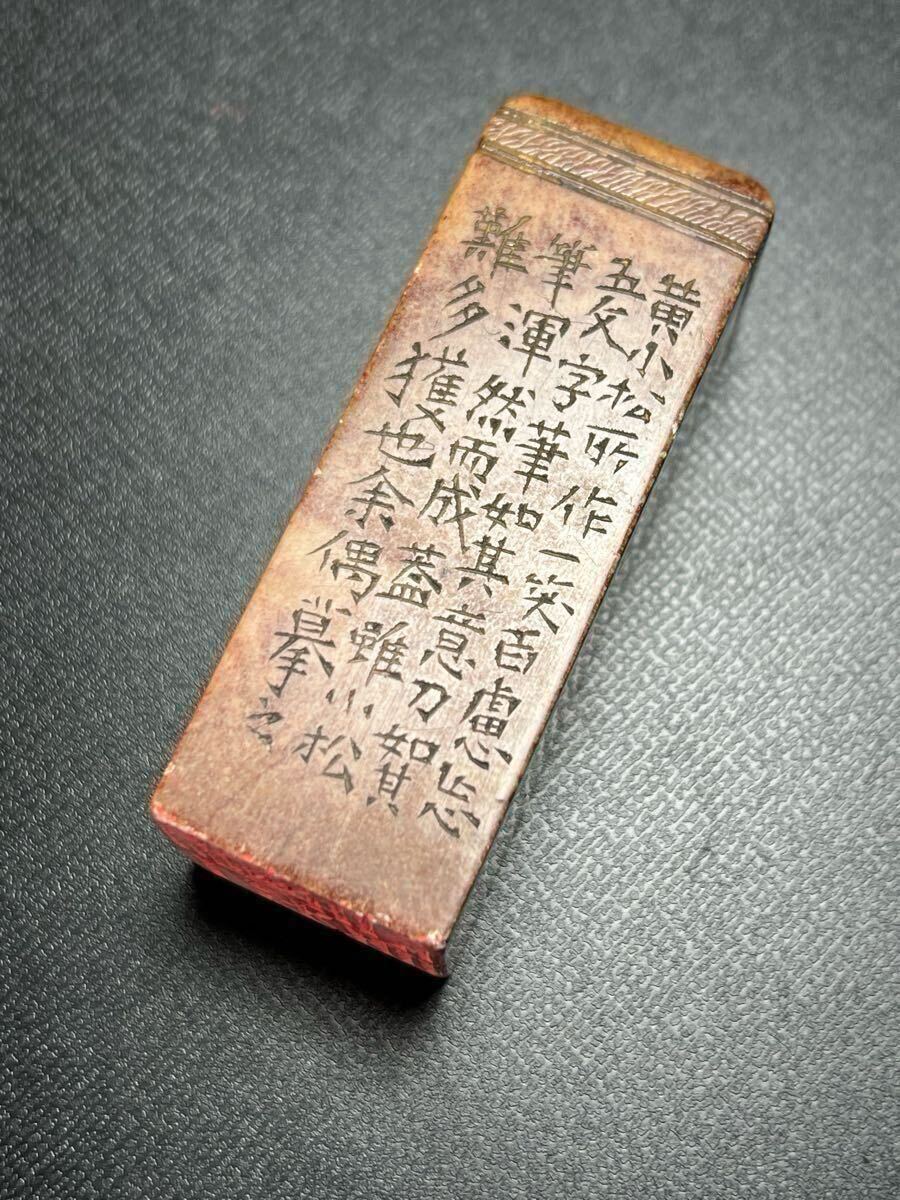 黄小松所作一笑百慮忘
五文字筆如其意刀如其
筆渾然而成蓋雖小松
難多獲也余偶摹之